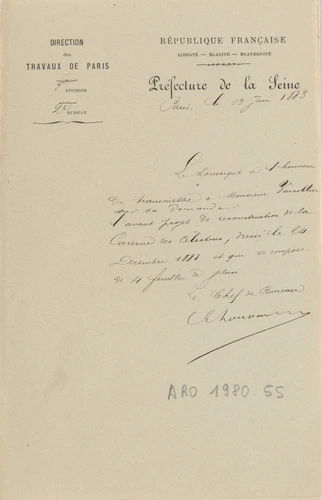 DIRECTION
des
TRAVAUX DE PARIS
DIVISION
2e BUREAU
RÉPUBLIQUE FRANÇAISE
LIBERTÉ — ÉGALITÉ — FRATERNITÉ
Préfecture de la Seine
Paris, le 13 Juin 1883
Le à l'honneur
De transmettre à Monsieur
sur sa demande
l'avant projet de reconstruction de la
Caserne des Célestins, dressé le 24
Décembre 1881 et qui se compose
de 4 feuilles de plan
Le Chef de Bureau
ARO 1980 55